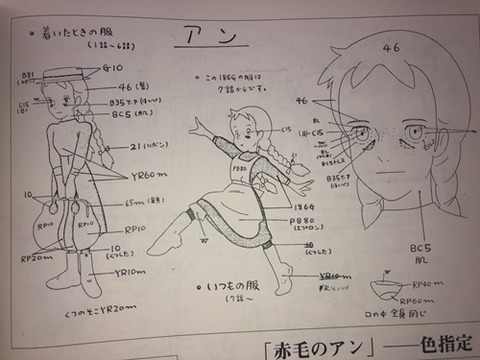 アン
・着いたときの服
(1話〜6話)
B81
G10
46 (髪)
C15
B35エア (ほっぺ)
BC5 (肌)
21 (リボン)
YR60m
10
65m
RP10
RP10
RP10
RP20m
10
(くつした)
YR10m
くつのそこYR20m
・この186Gの服は
7話からです。
C15
21
PB80
186G
PB80
(エプロン)
10
(くつした)
YR10m
・いつもの服
(7話〜
46
46
BL
C15
BL
B35エア
(ほっぺ)
BC5
肌
RP40m
RP60m
口の中 全員同じ
「赤毛のアン」──色指定